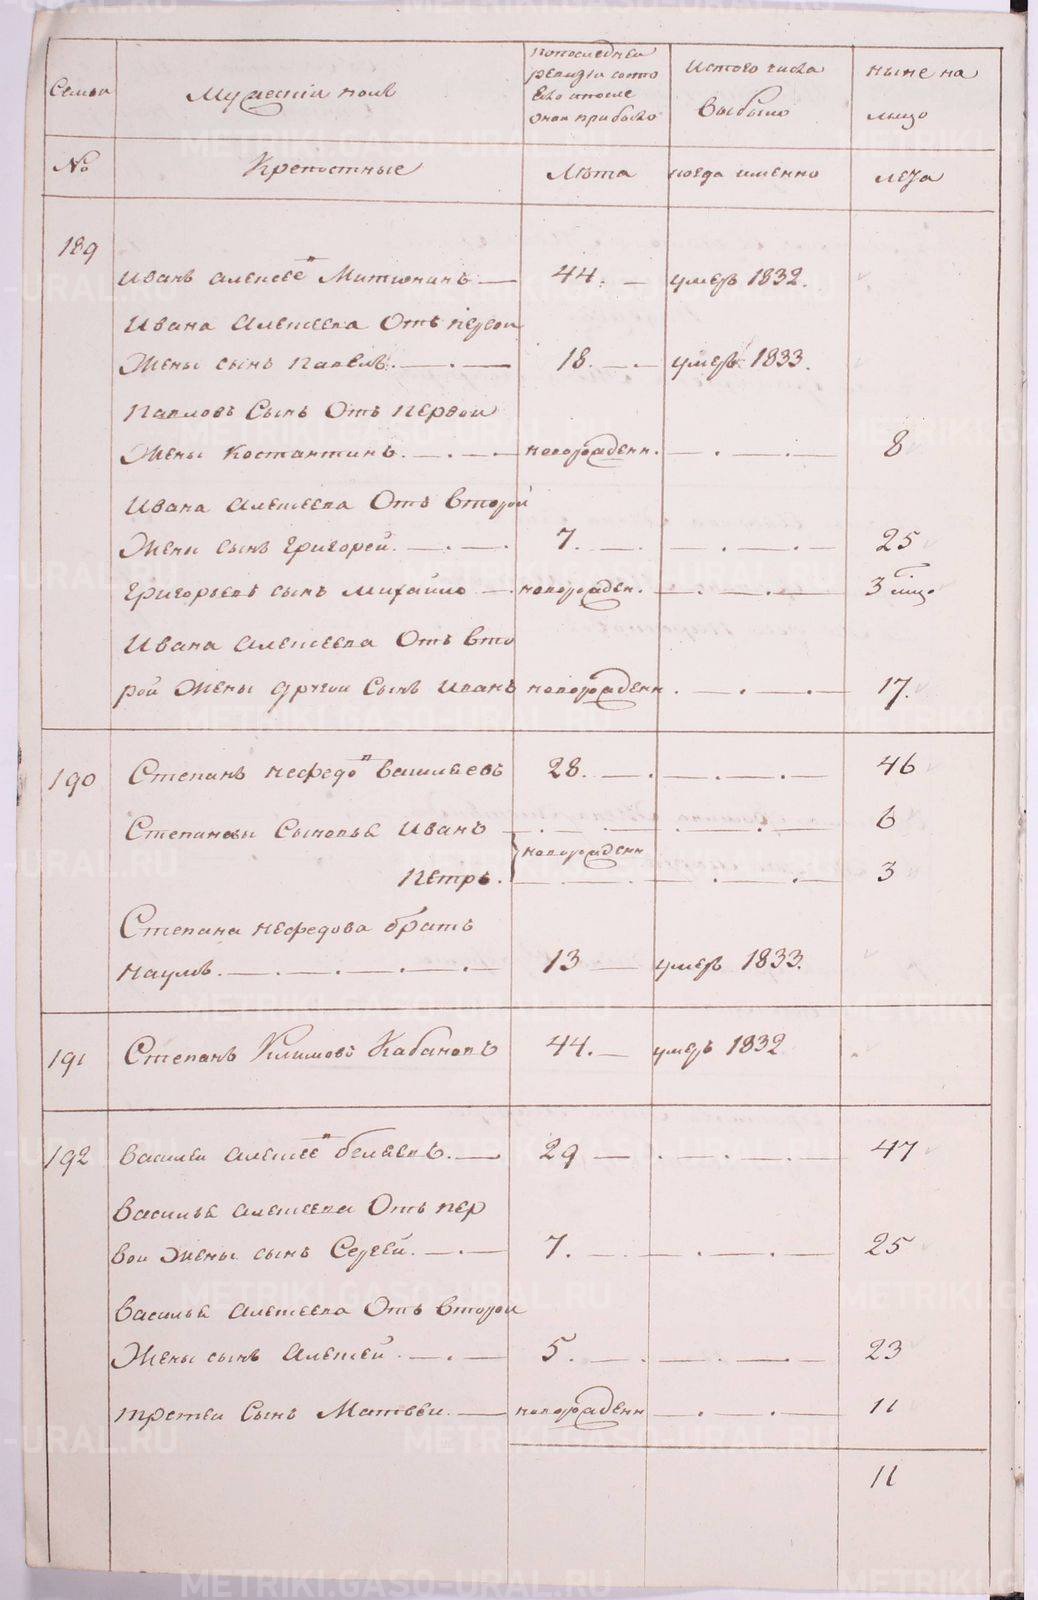 Семьи
Мужескій полъ
По последней
ревизіи состо
яло и после
оной прибыло
Истого числа
выбыло
ныне на
лицо
№
Крепостные
Лѣта
когда именно
лета
189
Иванъ Алексеевъ Митюнинъ 44. умеръ 1832.
Ивана Алексеева Отъ первой
Жены сынъ Павелъ. 18. умеръ 1833.
Павловъ Сынъ Отъ первой
Жены Костантинъ. новорожденн. 8
Ивана Алексеева Отъ второй
Жены сынъ Григорей. 7. 25
Григорьевъ сынъ Михайло новорожден. 3
Ивана Алексеева Отъ вто
рой Жены другой Сынъ Иванъ новорожденн. 17.
190 Степанъ Нефедовъ Васильевъ 28. 46
Степановы Сыновья Иванъ 6
новорожденн
Петръ. 3
Степана Нефедова братъ
Наумъ. 13 умеръ 1833.
191 Степанъ Климовъ Кабановъ 44. умеръ 1832
192 Василей Алексеевъ беляевъ. 29 47
Василья Алексеева Отъ пер
вой Жены сынъ Сергей. 7. 25
Василья Алексеева Отъ второй
Жены сынъ Алексей. 5. 23
третей Сынъ Матвей. новорожденн 11
11
METRIKI.GASO-URAL.RU